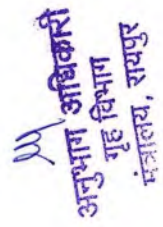 अनुभाग अधिकारी
गृह विभाग
मंत्रालय, रायपुर